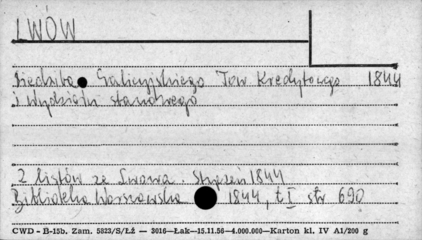 LWÓW
Siedziba Galicyjskiego Tow Kredytowego 1844
i Wydziału stanowego
Z listów ze Lwowa. Styczeń 1844
Biblioteka Warszawska 1844, t I str 690
CWD - B-15b. Zam. 5823/S/ŁŻ — 3016—Łak—15.11.56—4.000.000—Karton kl. IV A1/200 g